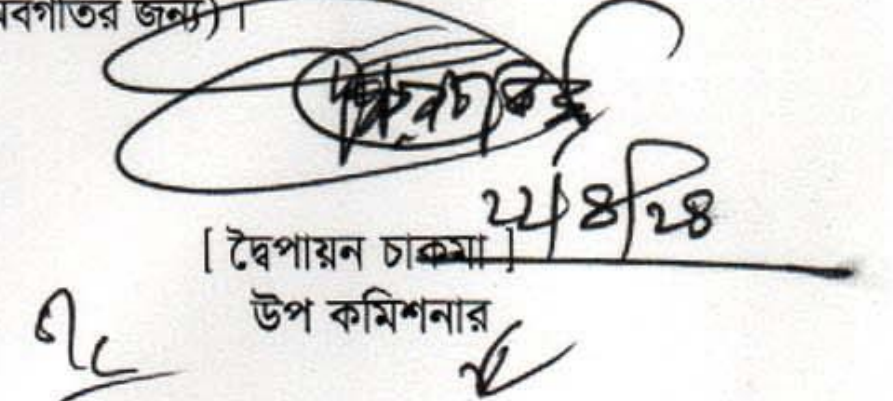 বগতির জন্য)।
২২/৪/২৪
[ দ্বৈপায়ন চাকমা ]
উপ কমিশনার